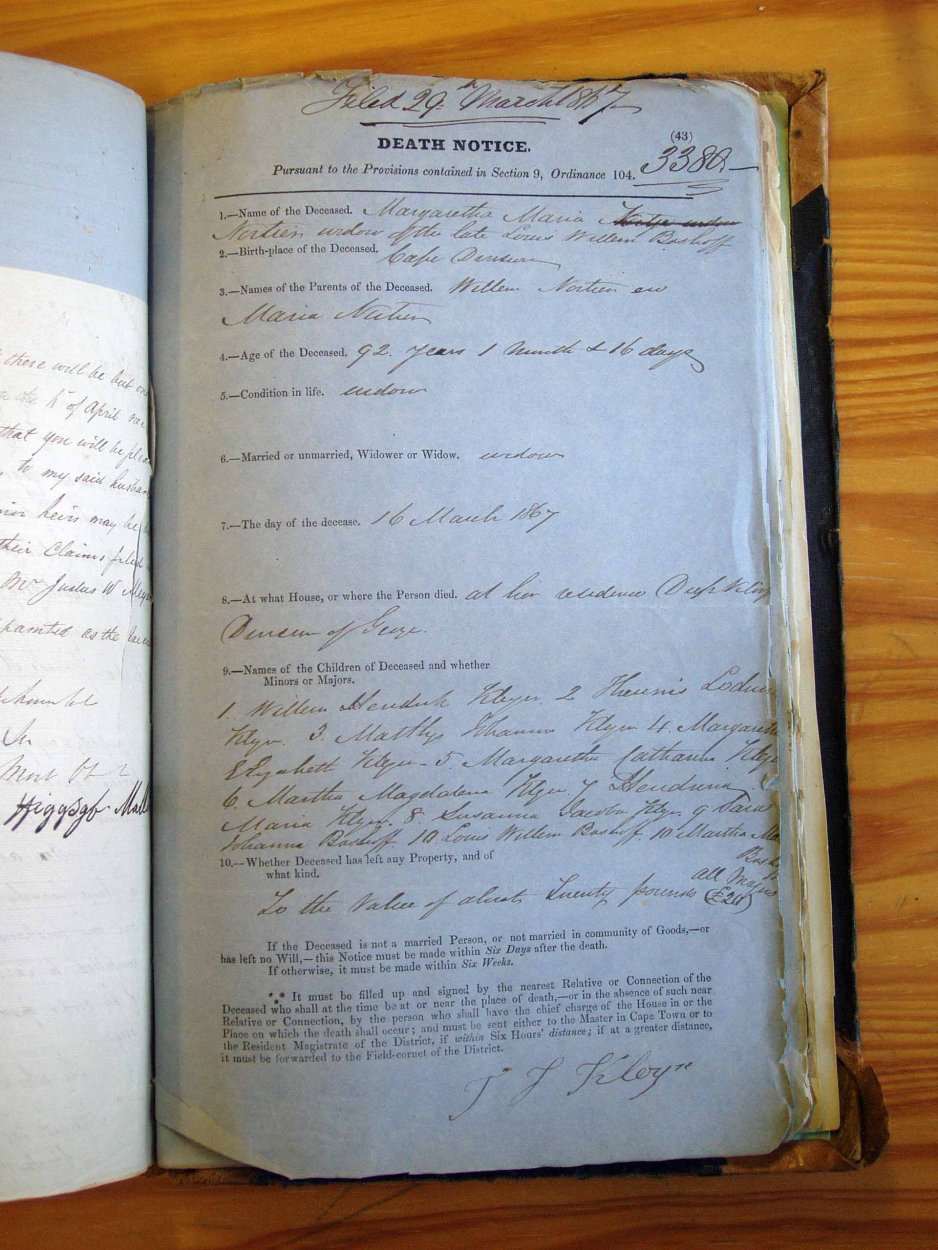 there will be but
the 4th of April
that you will be
to my said husban
heirs may be
their Claims filed
Mr Justus W
as the
Most Ob
Filed 29th March 1867
DEATH NOTICE.
(43)
Pursuant to the Provisions contained in Section 9, Ordinance 104.
3380
1.—Name of the Deceased. Margaretha Maria
Nortien widow of the late Louis Willem Boshoff
2.—Birth-place of the Deceased. Cape Division
3.—Names of the Parents of the Deceased. Willem Nortien en
Maria Nortien
4.—Age of the Deceased. 92 years 1 month & 16 days
5.—Condition in life. widow
6.—Married or unmarried, Widower or Widow. widow
7.—The day of the decease. 16 March 1867
8.—At what House, or where the Person died. at her residence
Division of George.
9.—Names of the Children of Deceased and whether
Minors or Majors.
1. Willem Hendrik Kleyn 2 Theunis
Kleyn. 3. Matthys Johannes Kleyn 4. Margareth
Elizabeth Kleyn - 5 Margaretha Catharina Kleyn
6. Martha Magdalena Kleyn 7 Hendrina
Maria Kleyn. 8. Susanna Jacoba Kleyn 9 Sara
Johanna Boshoff 10. Louis Willem Boshoff. 10 Martha
10.—Whether Deceased has left any Property, and of
what kind.
all Majors
To the Value of about Twenty pounds (£20)
If the Deceased is not a married Person, or not married in community of Goods,—or
has left no Will,—this Notice must be made within Six Days after the death.
If otherwise, it must be made within Six Weeks.
*** It must be filled up and signed by the nearest Relative or Connection of the
Deceased who shall at the time be at or near the place of death,—or in the absence of such near
Relative or Connection, by the person who shall have the chief charge of the House in or the
Place on which the death shall occur; and must be sent either to the Master in Cape Town or to
the Resident Magistrate of the District, if within Six Hours' distance; if at a greater distance,
it must be forwarded to the Field-cornet of the District.
T J Kleyn